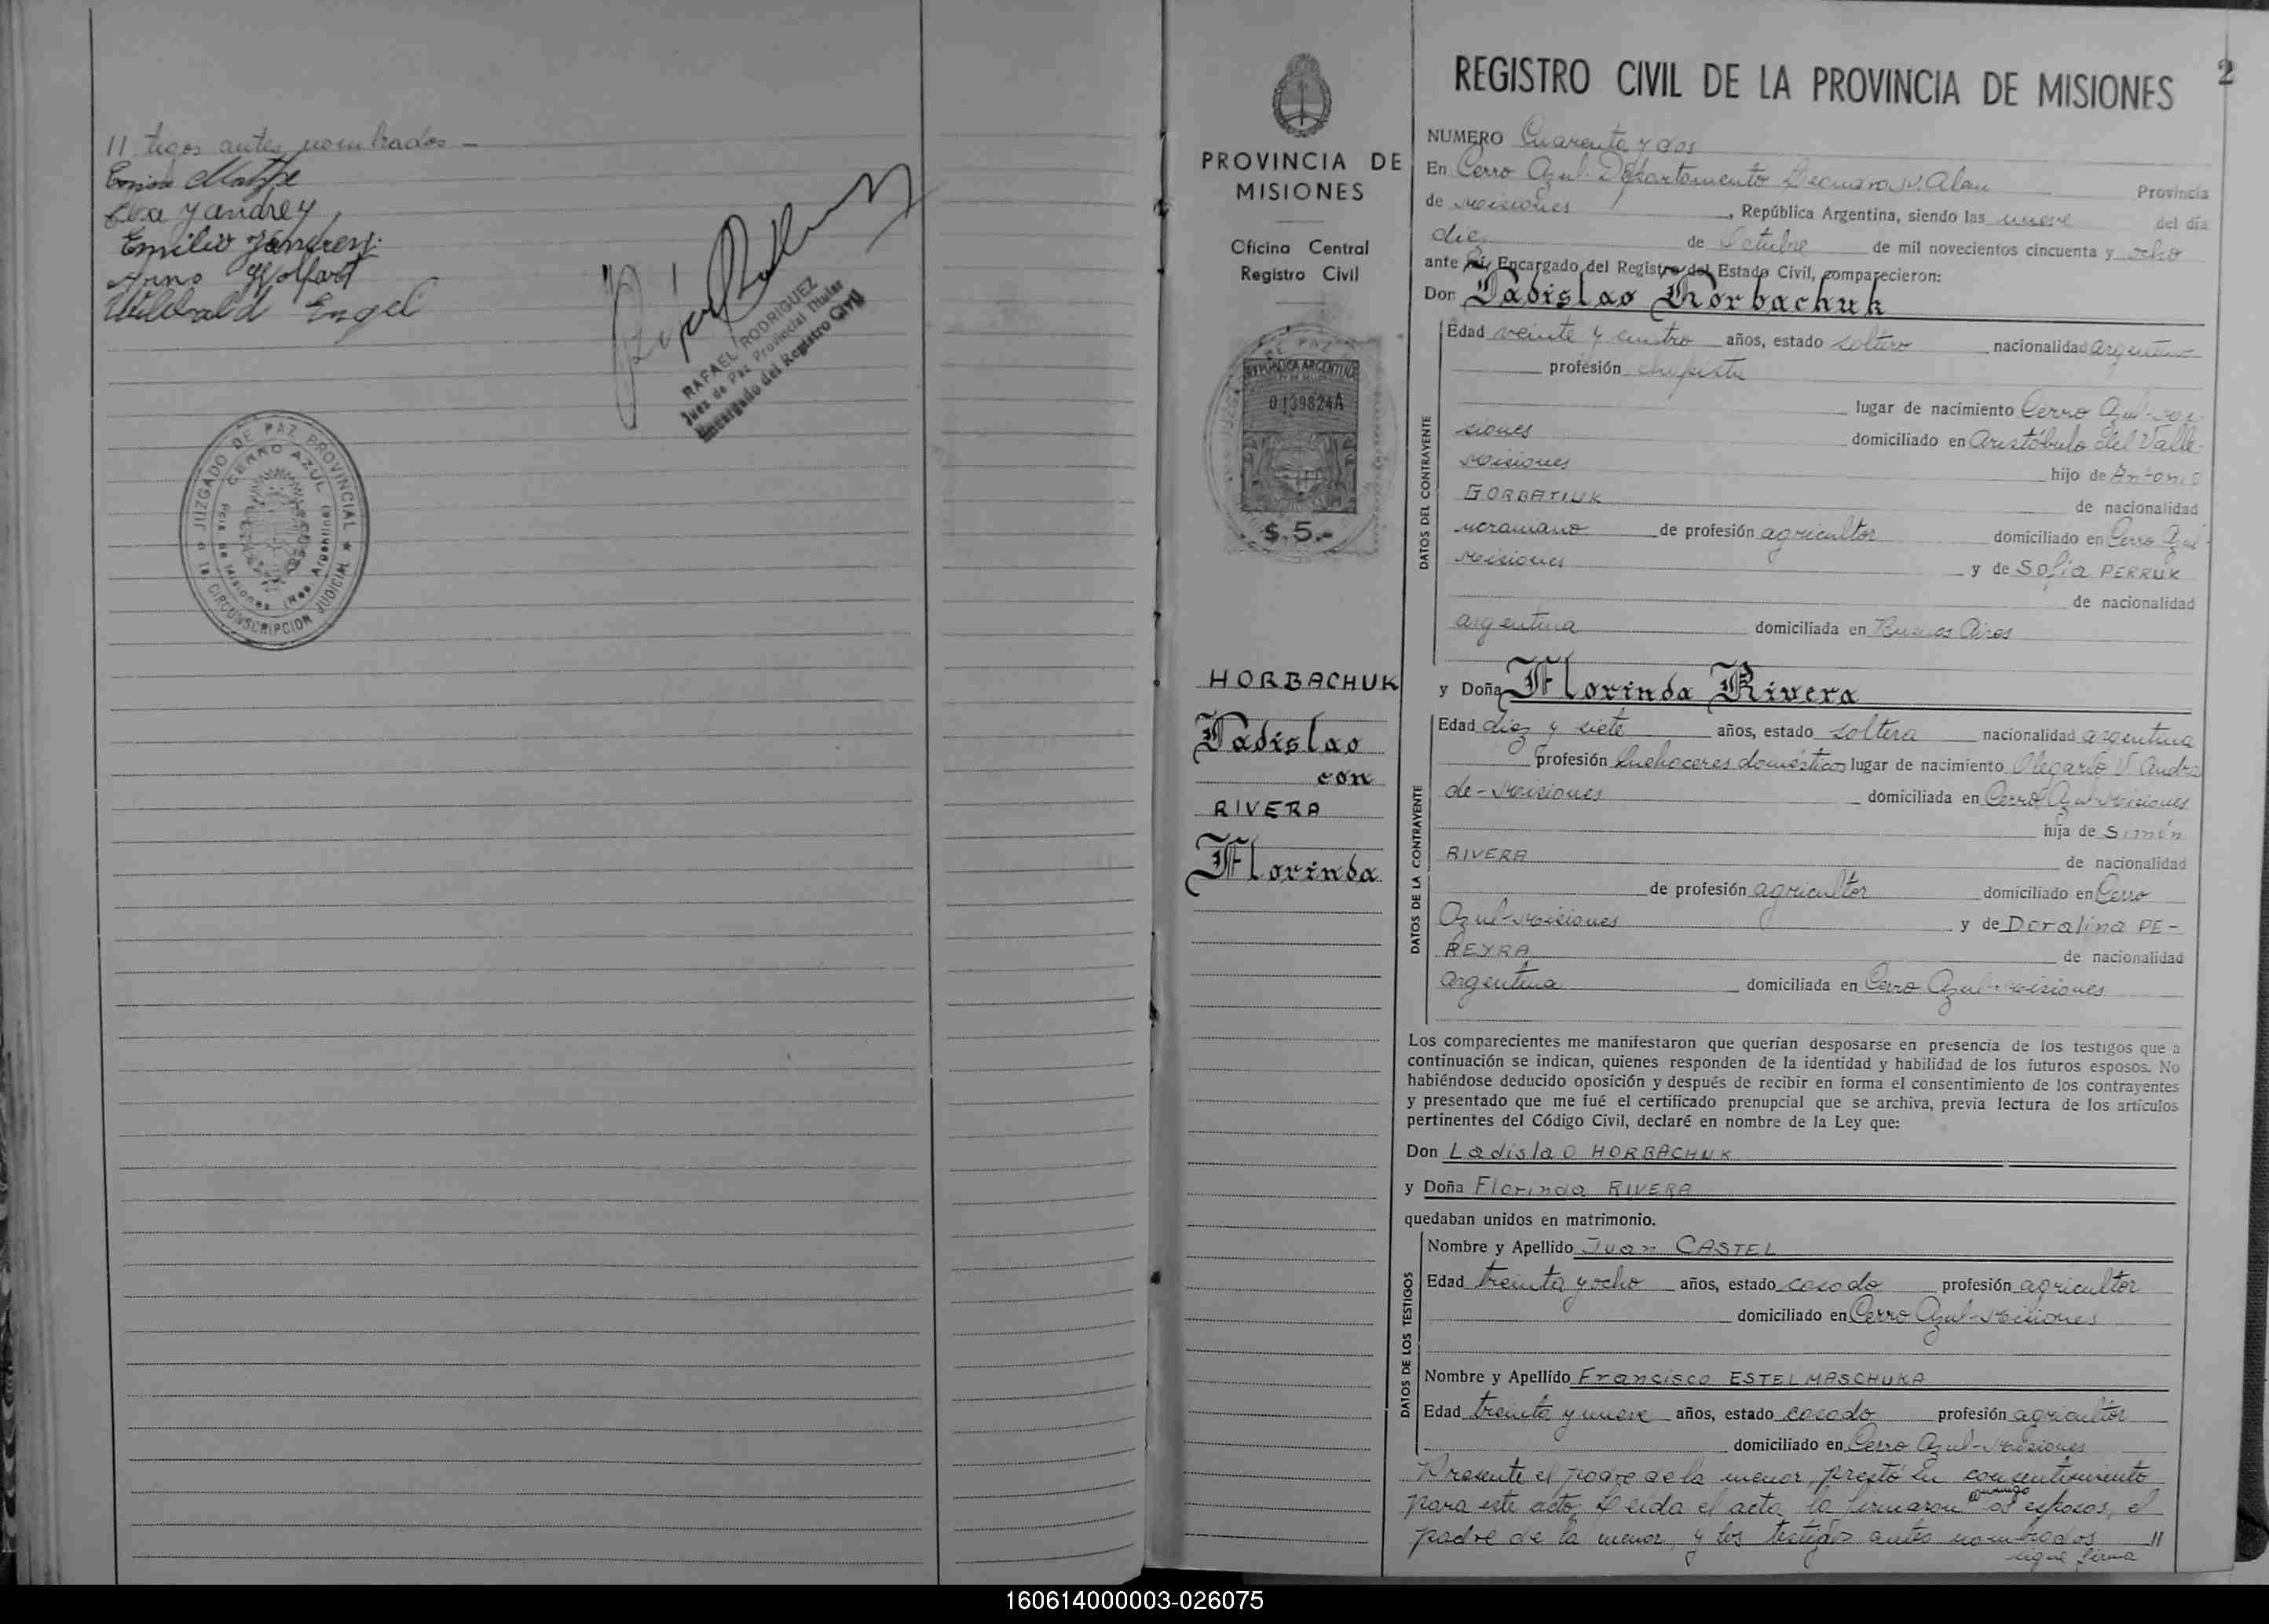 II tigos antes nombrados -
Elsa Yandrey
Emilio Yandrey
Anno Wolfart
Wilibald Engel
RAFAEL RODRIGUEZ
Juez de Paz Provincial Titular
Encargado del Registro Civil
JUZGADO DE PAZ PROVINCIAL
CERRO AZUL
Pcia. de Misiones (Rep. Argentina)
1a. CIRCUNSCRIPCION JUDICIAL
PROVINCIA DE
MISIONES
Oficina Central
Registro Civil
REPUBLICA ARGENTINA
0139824A
$.5.-
HORBACHUK
Ladislao
con
RIVERA
Florinda
2
REGISTRO CIVIL DE LA PROVINCIA DE MISIONES
NUMERO Cuarenta y dos
En Cerro Azul Departamento Leandro N. Alem Provincia
de Misiones, República Argentina, siendo las nueve del día
diez de Octubre de mil novecientos cincuenta y ocho
ante mí, Encargado del Registro del Estado Civil, comparecieron:
Don Ladislao Horbachuk
DATOS DEL CONTRAYENTE
Edad veinte y cuatro años, estado soltero nacionalidad argentino
profesión
lugar de nacimiento Cerro Azul-Mi-
siones domiciliado en Aristóbulo del Valle-
Misiones hijo de Antonio
GORBATIUK de nacionalidad
ucraniano de profesión agricultor domiciliado en Cerro Azul-
Misiones y de Sofía PERRUK
de nacionalidad
argentina domiciliada en Buenos Aires
y Doña Florinda Rivera
DATOS DE LA CONTRAYENTE
Edad diez y siete años, estado soltera nacionalidad argentina
profesión quehaceres domésticos lugar de nacimiento Olegario V. Andra
de-Misiones domiciliada en Cerro Azul-Misiones
hija de Simón
RIVERA de nacionalidad
de profesión agricultor domiciliado en Cerro
Azul-Misiones y de Doralina PE-
REYRA de nacionalidad
argentina domiciliada en Cerro Azul-Misiones
Los comparecientes me manifestaron que querían desposarse en presencia de los testigos que a
continuación se indican, quienes responden de la identidad y habilidad de los futuros esposos. No
habiéndose deducido oposición y después de recibir en forma el consentimiento de los contrayentes
y presentado que me fué el certificado prenupcial que se archiva, previa lectura de los artículos
pertinentes del Código Civil, declaré en nombre de la Ley que:
Don Ladislao HORBACHUK
y Doña Florinda RIVERA
quedaban unidos en matrimonio.
DATOS DE LOS TESTIGOS
Nombre y Apellido Juan CASTEL
Edad treinta y ocho años, estado casado profesión agricultor
domiciliado en Cerro Azul-Misiones
Nombre y Apellido Francisco ESTELMASCHUKA
Edad treinta y nueve años, estado casado profesión agricultor
domiciliado en Cerro Azul-Misiones
Presente el padre de la menor, prestó su concentimiento
para este acto. Leída el acta, la firmaron conmigo los esposos, el
padre de la menor y los testigos antes nombrados II
sigue firma
160614000003-026075